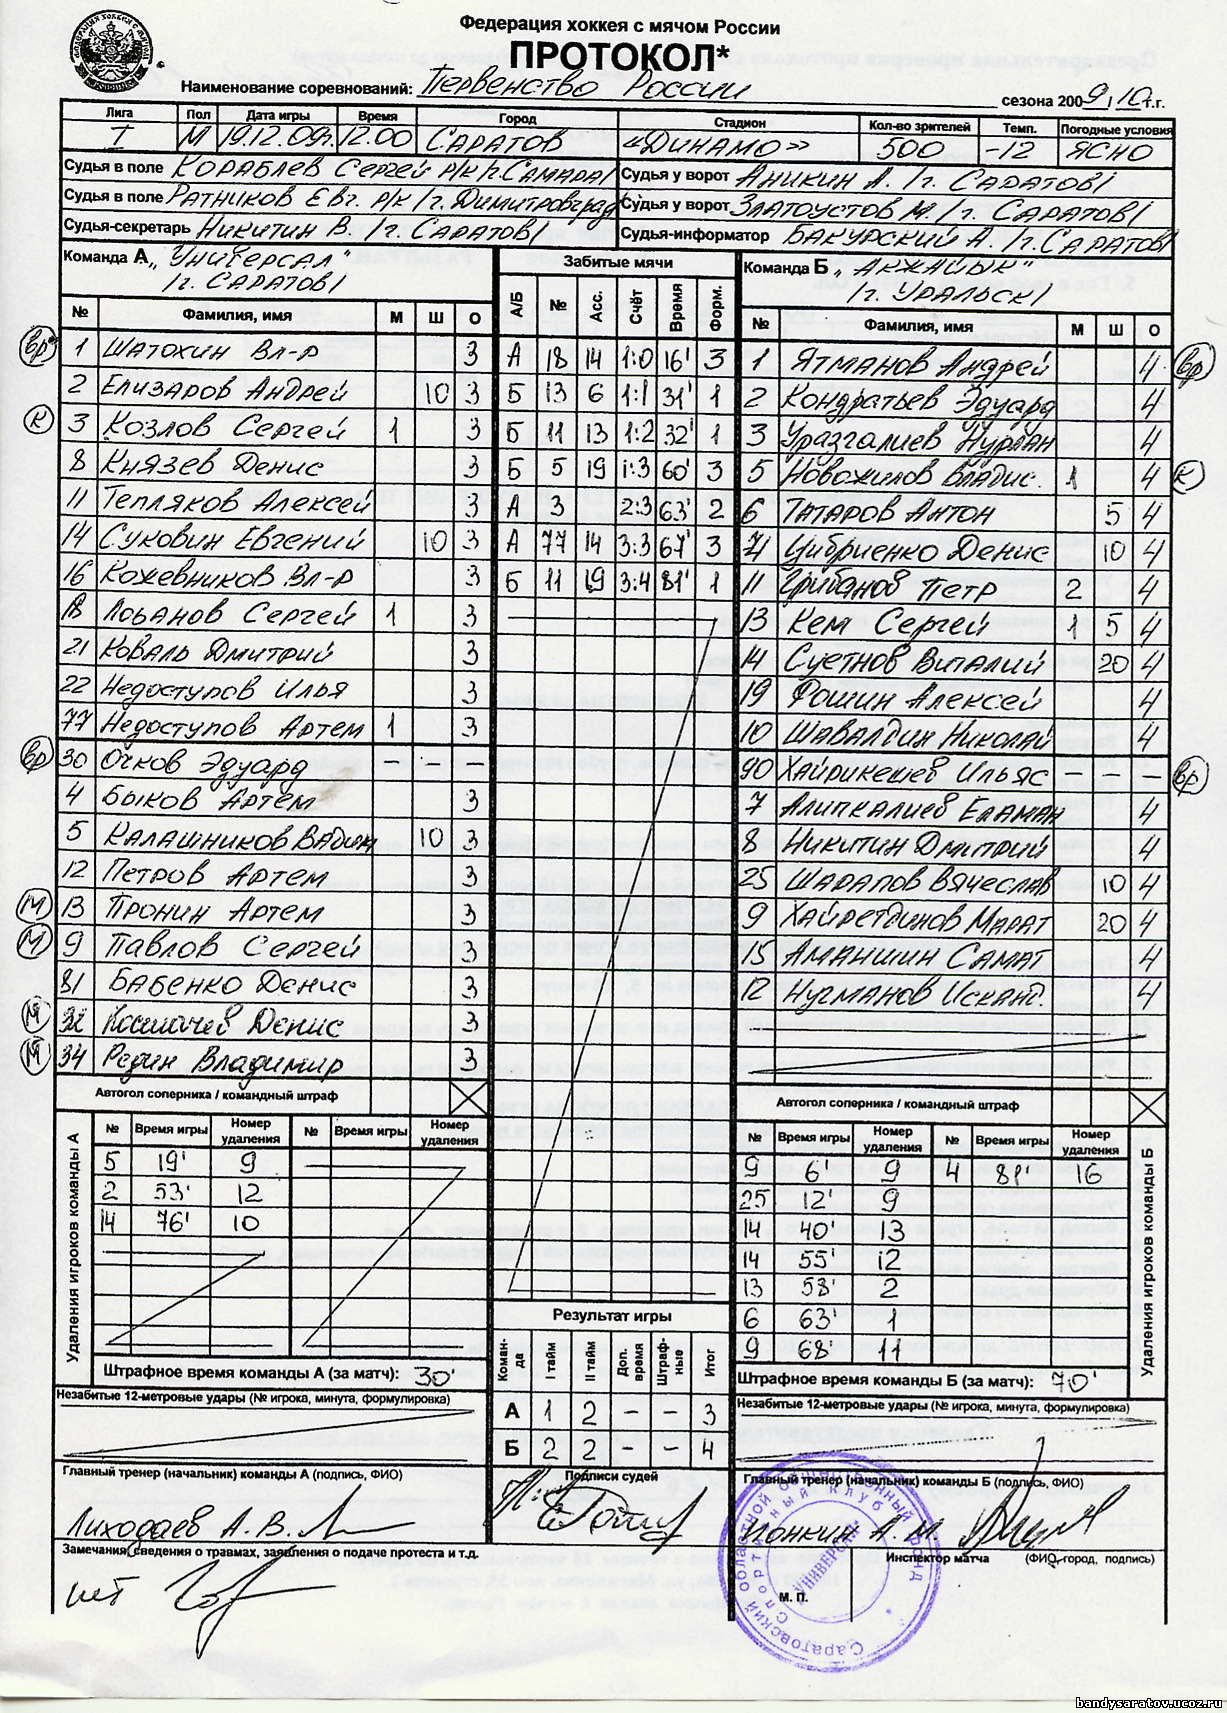 Федерация хоккея с мячом России
ПРОТОКОЛ*
Наименование соревнований: Первенство России сезона 2009/10 г.г.
Лига Пол Дата игры Время Город Стадион Кол-во зрителей Темп. Погодные условия
I М 19.12.09г. 12.00 САРАТОВ «ДИНАМО» 500 -12 ЯСНО
Судья в поле КОРАБЛЕВ Сергей р/к /г. САМАРА/ Судья у ворот АНИКИН А. /г. САРАТОВ/
Судья в поле РАТНИКОВ Евг. р/к /г. Димитровград/ Судья у ворот ЗЛАТОУСТОВ М. /г. САРАТОВ/
Судья-секретарь НИКИТИН В. /г. САРАТОВ/ Судья-информатор БАКУРСКИЙ А. /г. САРАТОВ/
Команда А „Универсал" /г. САРАТОВ/
Забитые мячи
Команда Б „АКЖАЙЫК" /г. УРАЛЬСК/
№ Фамилия, имя М Ш О
А/Б № Асс. Счёт Время Форм.
№ Фамилия, имя М Ш О
вр 1 ШАТОХИН Вл-р 3 А 18 14 1:0 16' 3 1 ЯТМАНОВ Андрей 4 вр
2 ЕЛИЗАРОВ АНДРЕЙ 10 3 Б 13 6 1:1 31' 1 2 Кондратьев Эдуард 4
К 3 КОЗЛОВ Сергей 1 3 Б 11 13 1:2 32' 1 3 Уразгалиев Нурлан 4
8 Князев Денис 3 Б 5 19 1:3 60' 3 5 Новожилов Владис. 1 4 К
11 Тепляков Алексей 3 А 3 2:3 63' 2 6 ТАТАРОВ АНТОН 5 4
14 Суковин Евгений 10 3 А 77 14 3:3 67' 3 4 Цибриенко Денис 10 4
16 Кожевников Вл-р 3 Б 11 19 3:4 81' 1 11 Грибанов Петр 2 4
18 Лобанов Сергей 1 3 13 Кем Сергей 1 5 4
21 Коваль Дмитрий 3 14 Суетнов Виталий 20 4
22 Недоступов Илья 3 19 Фошин Алексей 4
77 Недоступов Артем 1 3 10 ШАВАЛДИН Николай 4
вр 30 Очков Эдуард - - - 90 Хайрикешев Ильяс - - - вр
4 Быков Артем 3 7 Алипкалиев Еламан 4
5 КАЛАШНИКОВ ВАДИМ 10 3 8 Никитин Дмитрий 4
12 Петров Артем 3 25 ШАРАПОВ Вячеслав 10 4
М 13 Пронин Артем 3 9 Хайретдинов Марат 20 4
М 9 Павлов Сергей 3 15 АМАНШИН САМАТ 4
81 БАБЕНКО Денис 3 12 Нугманов Исканд. 4
М Космачев Денис 3
М 34 Редин Владимир 3
Автогол соперника / командный штраф
Автогол соперника / командный штраф
Удаления игроков команды А
№ Время игры Номер удаления № Время игры Номер удаления
5 19' 9
2 53' 12
14 76' 10
Штрафное время команды А (за матч): 30'
Удаления игроков команды Б
№ Время игры Номер удаления № Время игры Номер удаления
9 6' 9 4 81' 16
25 12' 9
14 40' 13
14 55' 12
13 58' 2
6 63' 1
9 68' 11
Штрафное время команды Б (за матч): 70'
Результат игры
Команда I тайм II тайм Доп. время Штрафные Итог
А 1 2 - - 3
Б 2 2 - - 4
Незабитые 12-метровые удары (№ игрока, минута, формулировка)
Незабитые 12-метровые удары (№ игрока, минута, формулировка)
Главный тренер (начальник) команды А (подпись, ФИО)
Лиходаев А.В.
Подписи судей
Главный тренер (начальник) команды Б (подпись, ФИО)
Понкин А.М.
Замечания, сведения о травмах, заявления о подаче протеста и т.д.
нет
Инспектор матча (ФИО, город, подпись)
М. П.
Саратовский областной общественный фонд
Спортивный клуб
"УНИВЕРСАЛ"
bandysaratov.ucoz.ru